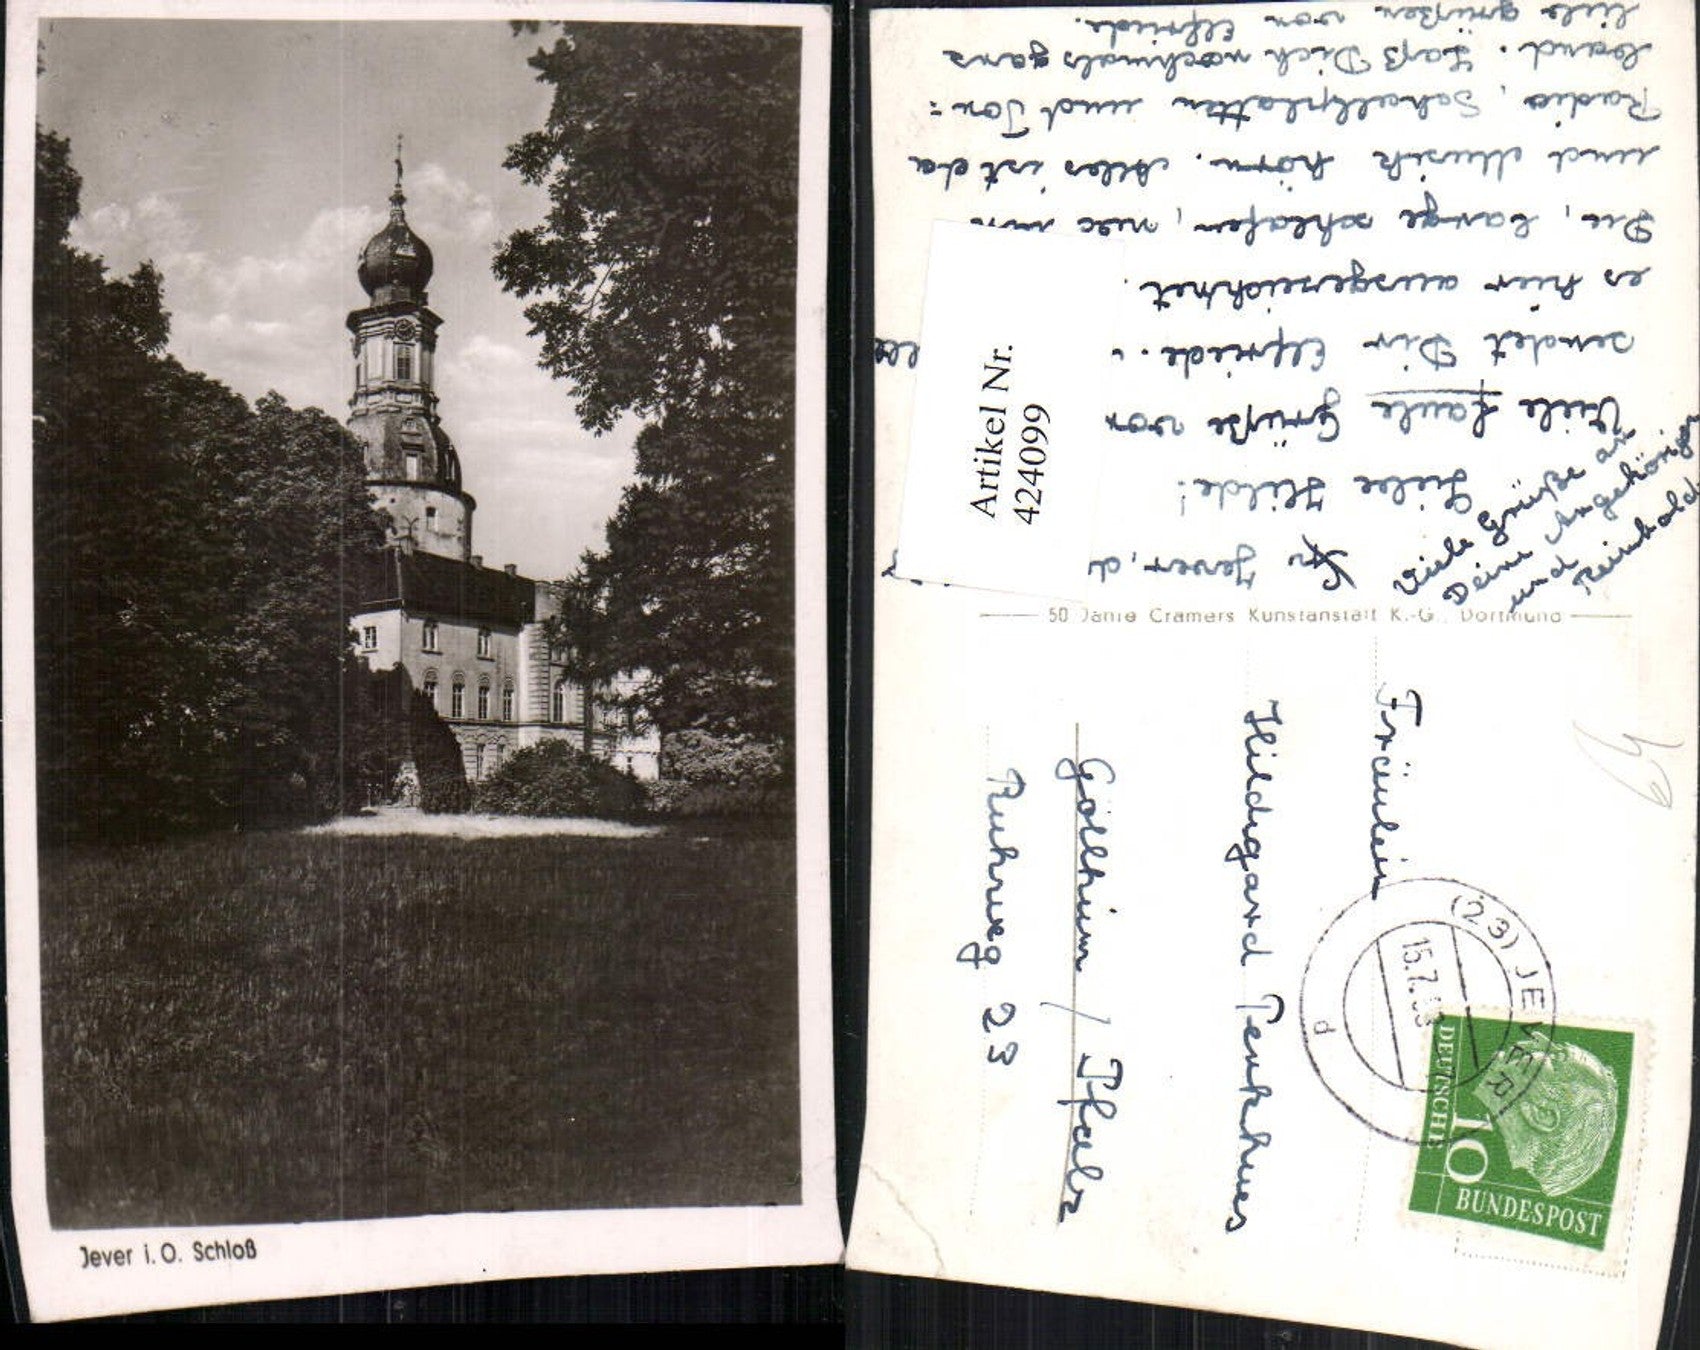 Jever i. O. Schloß
Jever, d
Liebe Hilde!
Viele faule Grüße von
sendet Dir Elfriede.
es hier ausgezeichnet.
Du, lange schlafen,
und Musik hören. Alles ist da
Radio, Schallplatten und Ton=
band. Laß Dich nochmals ganz
lieb grüßen von Elfriede.
Viele Grüße an
Deine Angehörigen
und
Reinhold
Artikel Nr.
424099
50 Jahre Cramers Kunstanstalt K.-G., Dortmund
Fräulein
Hildegard Penkhues
Göllheim / Pfalz
Ruhweg 23
(23) JEVER
15.7.
d
DEUTSCHE
10
BUNDESPOST